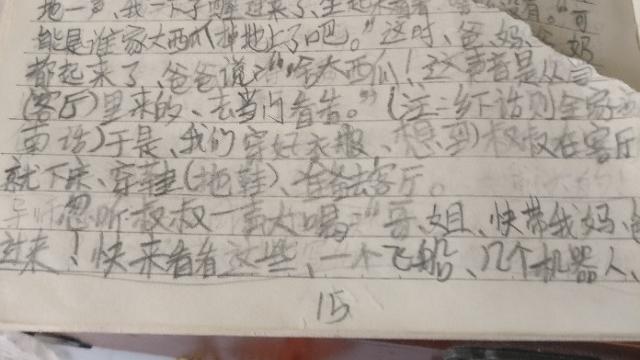 地一声，我一下子醒过来了，坐起来看看
能是谁家大西瓜掉地上了吧。”这时、爸、妈、
都起来了，爸爸说：“啥大西瓜！这声音是从
(客厅)里来的、去当门看看。”(注：乡下话则全家
于是、我们穿好衣服、想到叔叔在客厅
就下床、穿鞋(拖鞋)、准备去客厅。
忽听叔叔一声大喝：“哥、姐、快带我妈、
过来！快来看看这些、一个飞船、几个机器人、
15